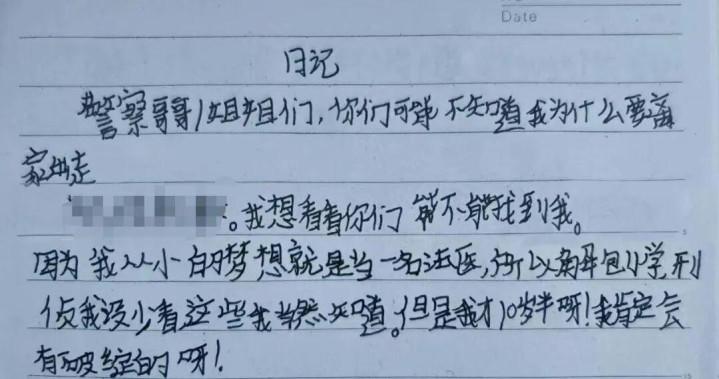 Date
日记
警察哥哥/姐姐们，你们可能不知道我为什么要离
家出走
。我想看看你们能不能找到我。
因为我从小的梦想就是当一名法医，所以解刨学，刑
侦我没少看这些我当然知道。但是我才10岁半呀！我肯定会
有破绽的呀！